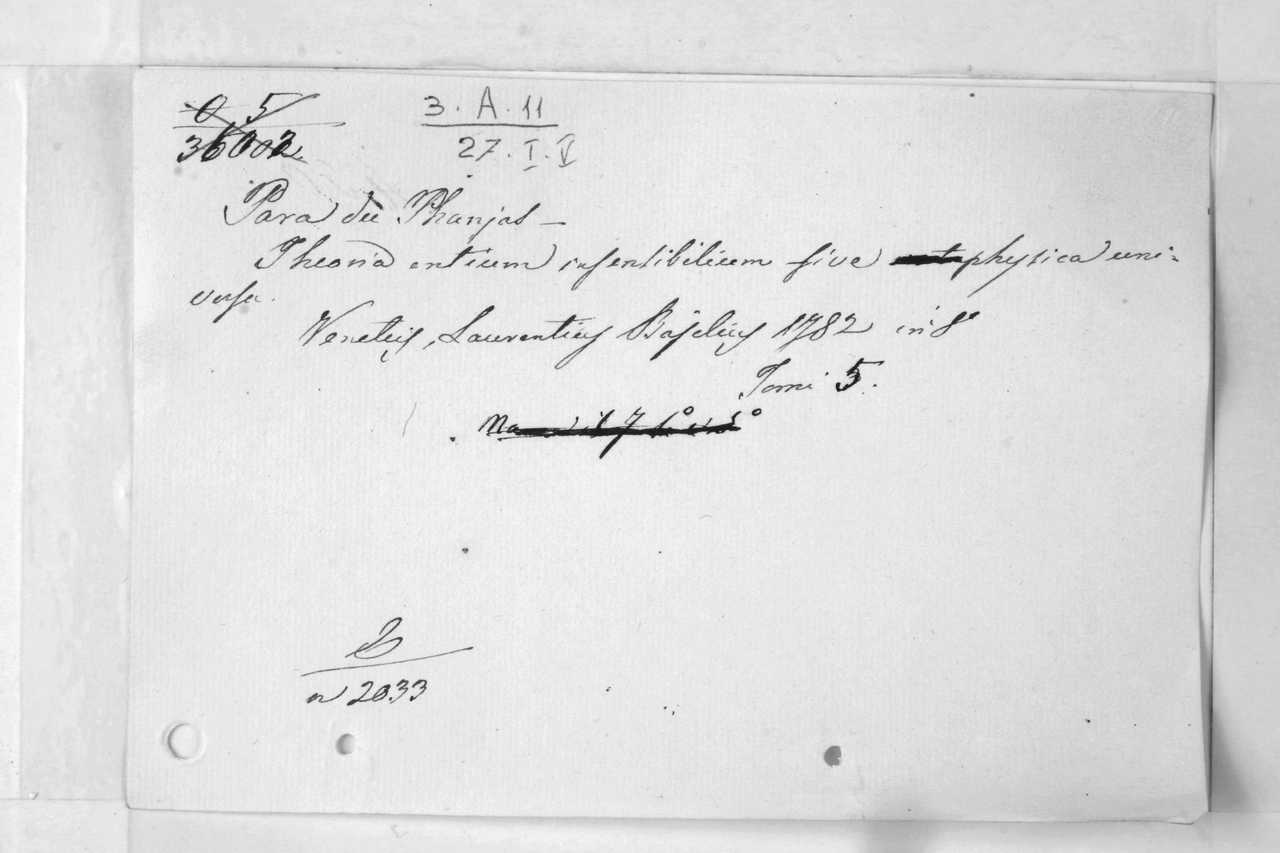 O 5
36002
3. A. 11
27. I. V
Para du Phanjas —
Theoria entium insensibilium sive physica uni-
versa.
Venetiis, Laurentius Baselius 1782 in 8°
Tomi 5.
n 2033